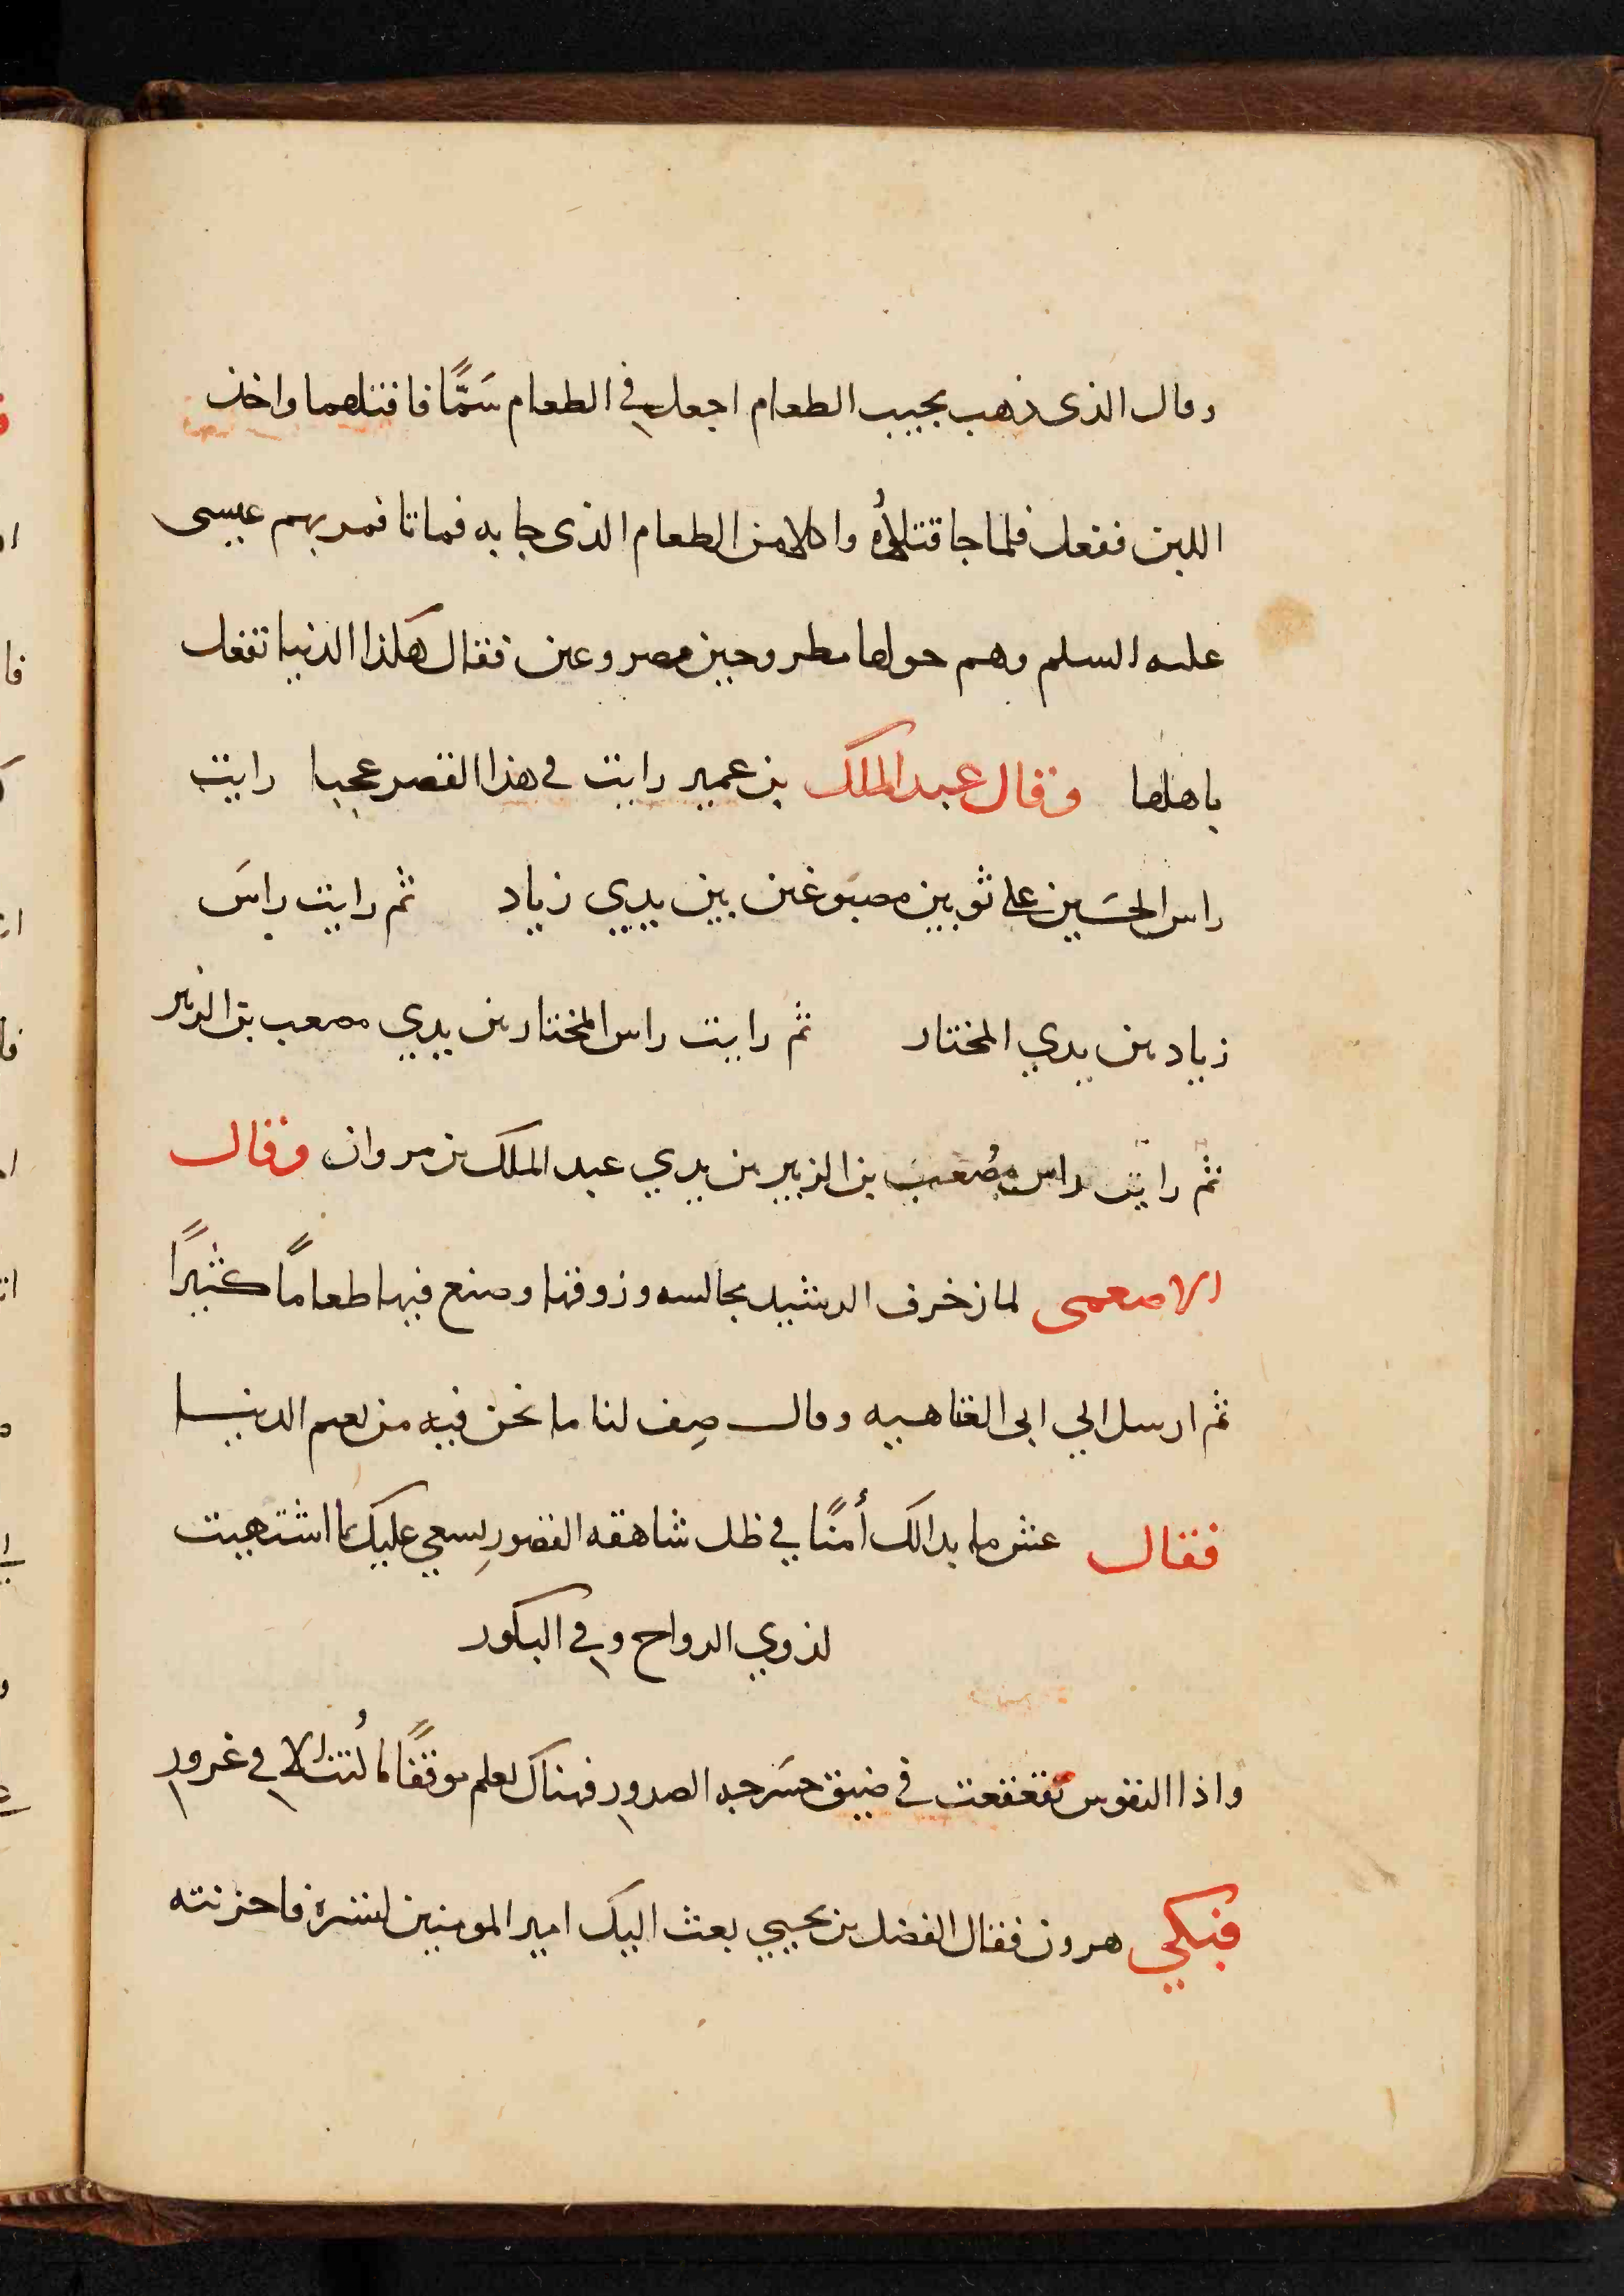 وقال الذى ذهب بجيب الطعام اجعل في الطعام سَمًّا فاقتلهما واخذ
اللبن ففعل فلما جا قتلاُه واكلا من الطعام الذى جا به فماتا فمر بهم عيسى
عليه السلم وهم حولها مطروحين مصروعين فقال هكذا الدنيا تفعل
باهلها وقال عبد الملك بن عمير رايت في هذا القصر عجبا رايت
راس الحسَين علي ثوبين مصبَوغين بين يدي زياد ثم رايت راسَ
زياد بين يدي المختار ثم رايت راس المختار بين يدي مصعب بن الزبير
ثم رايت راس مُصعب بن الزبير بين يدي عبد الملك بن مروان وقال
الاصمعى لما زخرف الرشيد مجالسه وزوقها وصنع فيها طعاماً كثيرًا
ثم ارسل الي ابى العتاهيه وقال صِف لنا ما نحن فيه من نعيم الدنيا
فقال عش ما بدالك أمنًا في ظل شاهقه القصورِ يسعي عليك بما اشتهيت
لذوي الرواح وفي البكور
واذا النفوس تقعقعت في ضيق حسَرجه الصدور فهناك تعلم موقفًا ما كُنت الا في غرور
فبكي هرون فقال الفضل بن يحيي بعث اليك امير المومنين لتسره فاحزنته